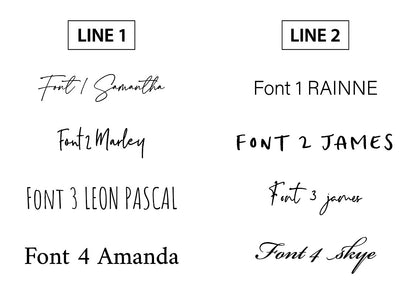 LINE 1
Font 1 Samantha
Font 2 Marley
Font 3 LEON PASCAL
Font 4 Amanda
LINE 2
Font 1 RAINNE
FONT 2 JAMES
Font 3 james
Font 4 skye